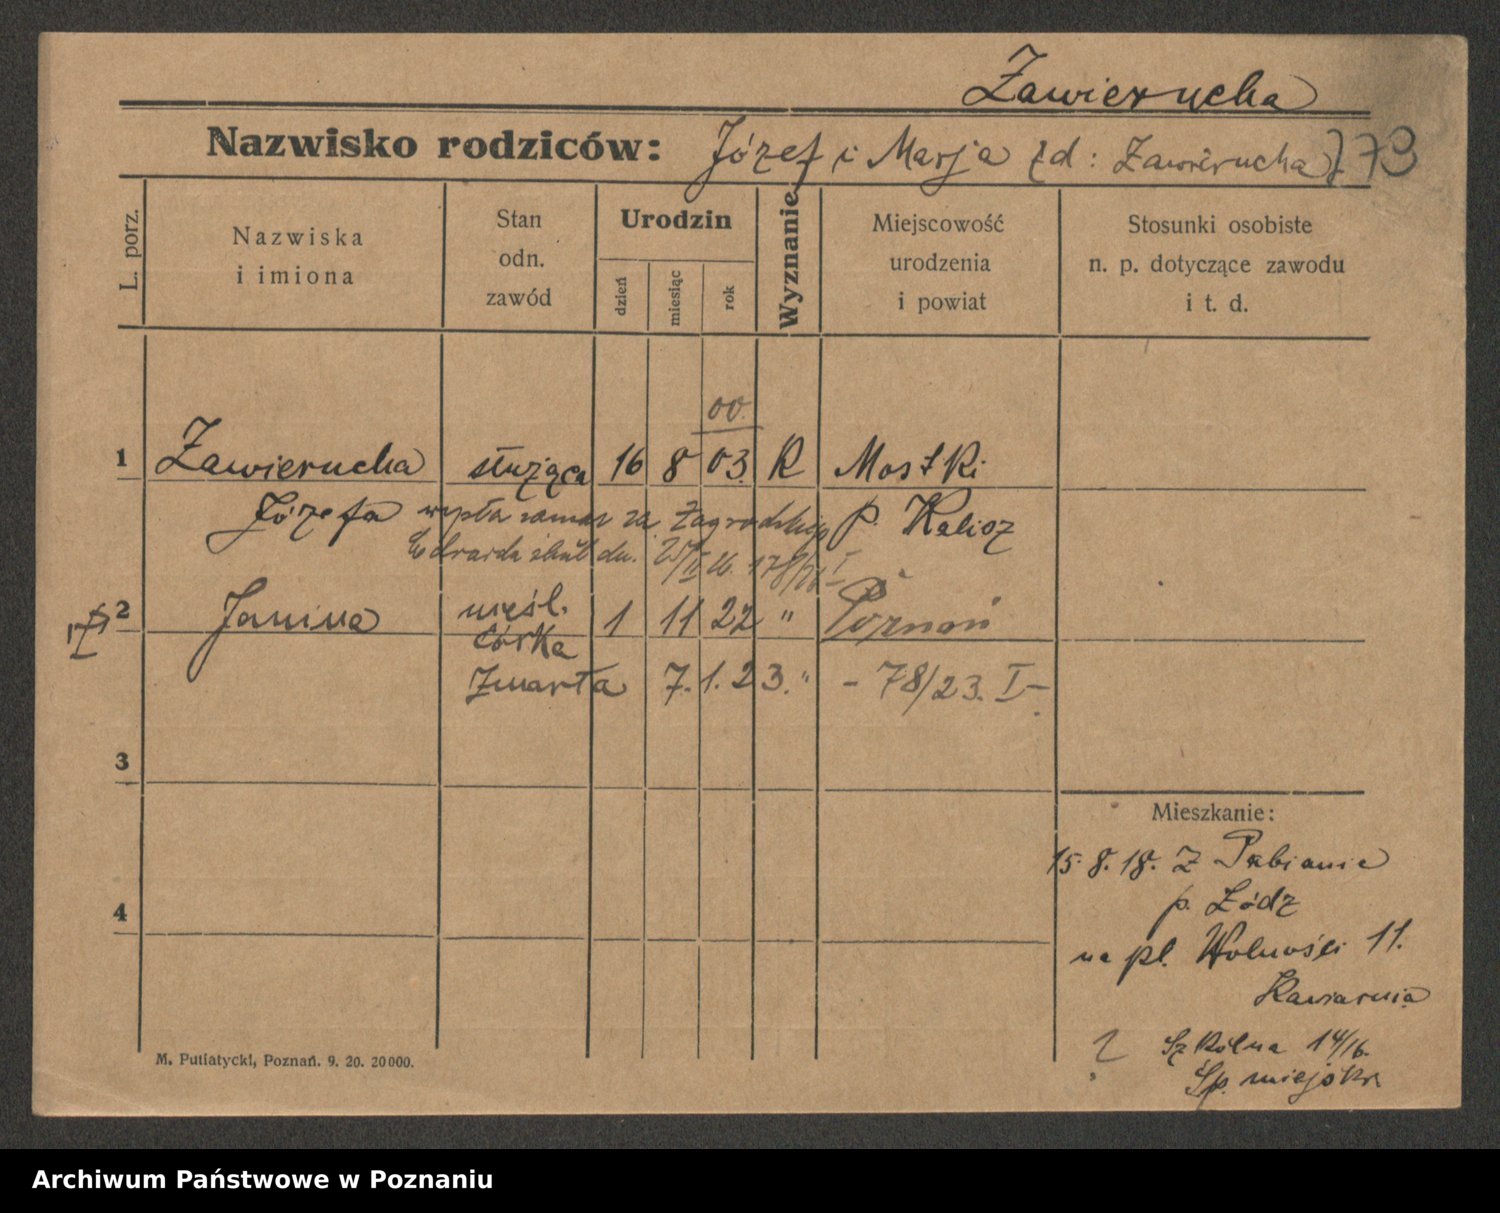 Zawierucha
Nazwisko rodziców: Józef i Marja zd: Zawierucha 773
L. porz.
Nazwiska i imiona
Stan odn. zawód
Urodzin
dzień
miesiąc
rok
Wyznanie
Miejscowość urodzenia i powiat
Stosunki osobiste n. p. dotyczące zawodu i t. d.
00.
1 Zawierucha służąca 16 8 03. R Mostki
Józefa wyszła zamąż za Zagrodzkiego p. Kalisz
Edwarda ślub dn.
2 Janina nieśl. 1 11 22 " Poznań
córka
Zmarła 7. 1. 23. " - 78/23. I -
3
4
Mieszkanie:
15. 8. 18. z Pabianic
p. Łódz
na pl. Wolności 11.
Kawiarnia
? Szkólna 14/16.
Śp. miejska
M. Putiatycki, Poznań. 9. 20. 20000.
Archiwum Państwowe w Poznaniu